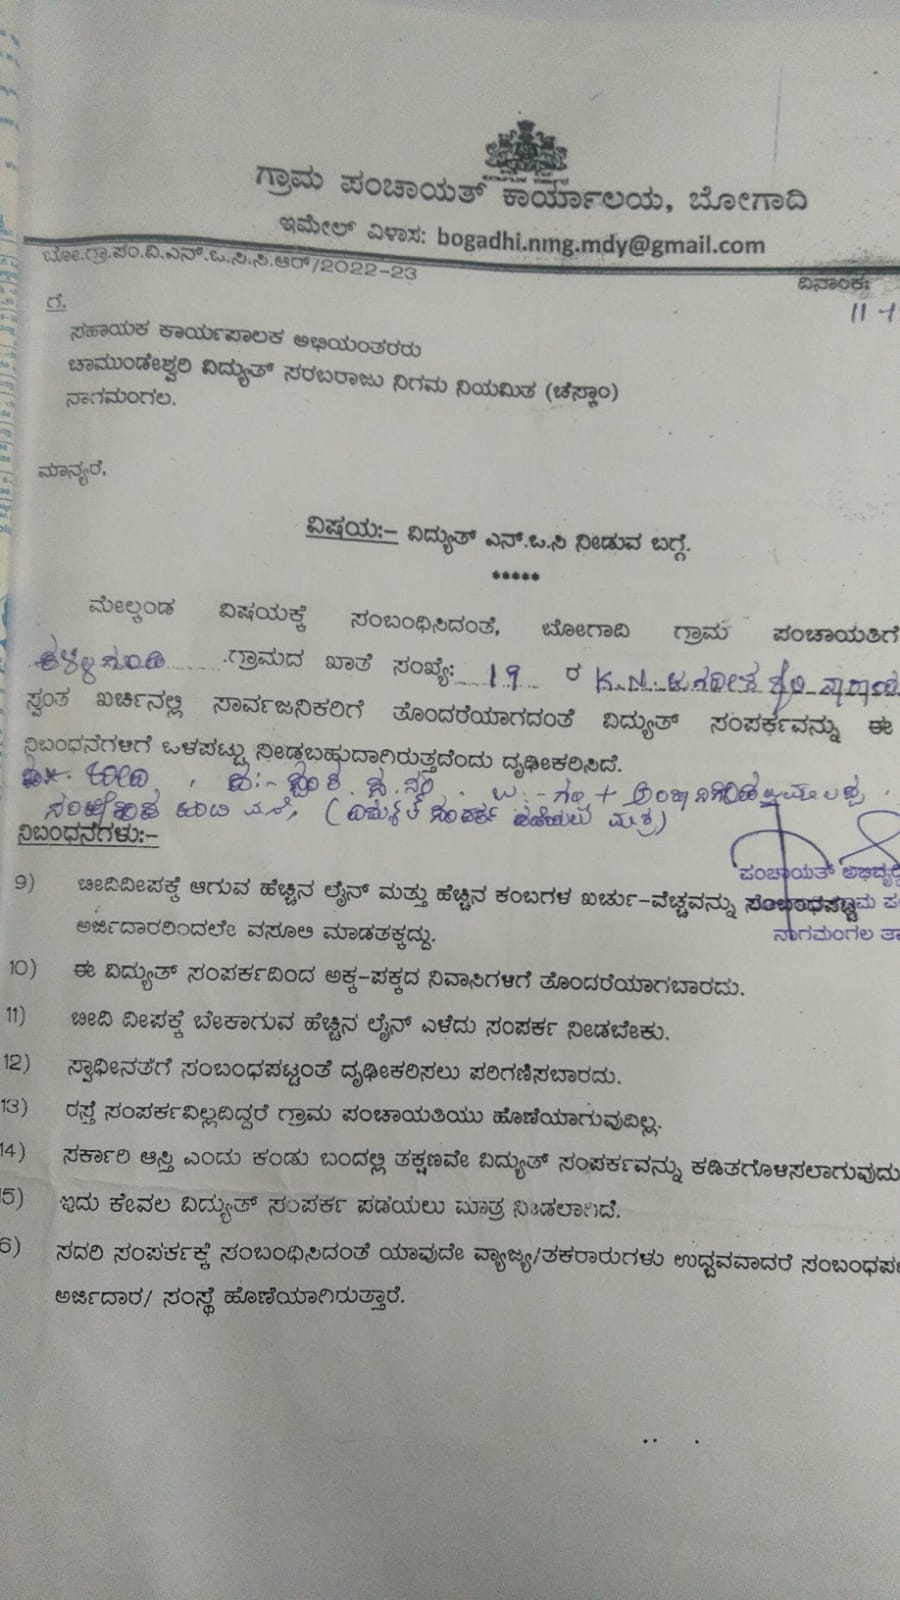 ಗ್ರಾಮ ಪಂಚಾಯತ್ ಕಾರ್ಯಾಲಯ, ಬೋಗಾದಿ
ಇಮೇಲ್ ವಿಳಾಸ: bogadhi.nmg.mdy@gmail.com
ಬೋ.ಗ್ರಾ.ಪಂ.ವಿ.ಎನ್.ಒ.ಸಿ.ಸಿ.ಆರ್/2022-23
ದಿನಾಂಕ:
11
ಗೆ,
ಸಹಾಯಕ ಕಾರ್ಯಪಾಲಕ ಅಭಿಯಂತರರು
ಚಾಮುಂಡೇಶ್ವರಿ ವಿದ್ಯುತ್ ಸರಬರಾಜು ನಿಗಮ ನಿಯಮಿತ (ಚೆಸ್ಕಾಂ)
ನಾಗಮಂಗಲ.
ಮಾನ್ಯರೆ,
ವಿಷಯ:- ವಿದ್ಯುತ್ ಎನ್.ಒ.ಸಿ ನೀಡುವ ಬಗ್ಗೆ.
*****
ಮೇಲ್ಕಂಡ ವಿಷಯಕ್ಕೆ ಸಂಬಂಧಿಸಿದಂತೆ, ಬೋಗಾದಿ ಗ್ರಾಮ ಪಂಚಾಯತಿಗೆ
ಗ್ರಾಮದ ಖಾತೆ ಸಂಖ್ಯೆ: 19 ರ K.N.
ಸ್ವಂತ ಖರ್ಚಿನಲ್ಲಿ ಸಾರ್ವಜನಿಕರಿಗೆ ತೊಂದರೆಯಾಗದಂತೆ ವಿದ್ಯುತ್ ಸಂಪರ್ಕವನ್ನು ಈ
ನಿಬಂಧನೆಗಳಿಗೆ ಒಳಪಟ್ಟು ನೀಡಬಹುದಾಗಿರುತ್ತದೆಂದು ದೃಢೀಕರಿಸಿದೆ.
(ವಿದ್ಯುತ್ ಸಂಪರ್ಕ ಪಡೆಯಲು ಮಾತ್ರ)
ನಿಬಂಧನೆಗಳು:-
ಪಂಚಾಯತ್ ಅಭಿವೃದ್ಧಿ
9) ಬೀದಿದೀಪಕ್ಕೆ ಆಗುವ ಹೆಚ್ಚಿನ ಲೈನ್ ಮತ್ತು ಹೆಚ್ಚಿನ ಕಂಬಗಳ ಖರ್ಚು-ವೆಚ್ಚವನ್ನು ಸಂಬಂಧಪಟ್ಟ
ಅರ್ಜಿದಾರರಿಂದಲೇ ವಸೂಲಿ ಮಾಡತಕ್ಕದ್ದು.
ನಾಗಮಂಗಲ ತಾ
10) ಈ ವಿದ್ಯುತ್ ಸಂಪರ್ಕದಿಂದ ಅಕ್ಕ-ಪಕ್ಕದ ನಿವಾಸಿಗಳಿಗೆ ತೊಂದರೆಯಾಗಬಾರದು.
11) ಬೀದಿ ದೀಪಕ್ಕೆ ಬೇಕಾಗುವ ಹೆಚ್ಚಿನ ಲೈನ್ ಎಳೆದು ಸಂಪರ್ಕ ನೀಡಬೇಕು.
12) ಸ್ವಾಧೀನತೆಗೆ ಸಂಬಂಧಪಟ್ಟಂತೆ ದೃಢೀಕರಿಸಲು ಪರಿಗಣಿಸಬಾರದು.
13) ರಸ್ತೆ ಸಂಪರ್ಕವಿಲ್ಲದಿದ್ದರೆ ಗ್ರಾಮ ಪಂಚಾಯತಿಯು ಹೊಣೆಯಾಗುವುದಿಲ್ಲ.
14) ಸರ್ಕಾರಿ ಆಸ್ತಿ ಎಂದು ಕಂಡು ಬಂದಲ್ಲಿ ತಕ್ಷಣವೇ ವಿದ್ಯುತ್ ಸಂಪರ್ಕವನ್ನು ಕಡಿತಗೊಳಿಸಲಾಗುವುದು
5) ಇದು ಕೇವಲ ವಿದ್ಯುತ್ ಸಂಪರ್ಕ ಪಡೆಯಲು ಮಾತ್ರ ನೀಡಲಾಗಿದೆ.
6) ಸದರಿ ಸಂಪರ್ಕಕ್ಕೆ ಸಂಬಂಧಿಸಿದಂತೆ ಯಾವುದೇ ವ್ಯಾಜ್ಯ/ತಕರಾರುಗಳು ಉದ್ಭವವಾದರೆ ಸಂಬಂಧಪ
ಅರ್ಜಿದಾರ/ ಸಂಸ್ಥೆ ಹೊಣೆಯಾಗಿರುತ್ತಾರೆ.